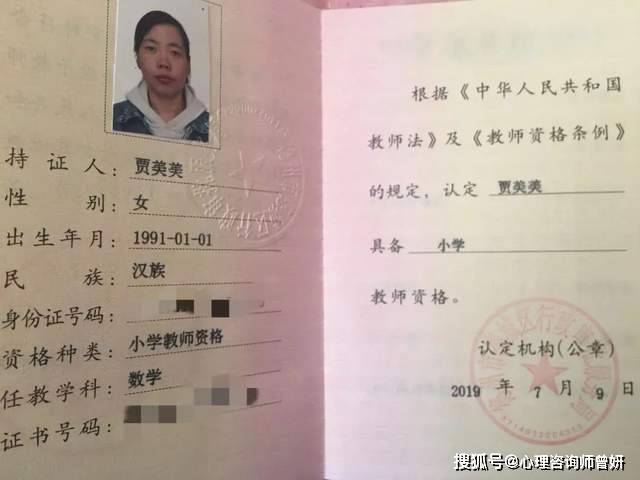 持证人：贾美美
性别：女
出生年月：1991-01-01
民族：汉族
身份证号码：
资格种类：小学教师资格
任教学科：数学
证书号码：
根据《中华人民共和国
教师法》及《教师资格条例》
的规定，认定 贾美美
具备 小学
教师资格。
认定机构(公章)
2019 年 7 月 9 日
搜狐号@心理咨询师曾妍